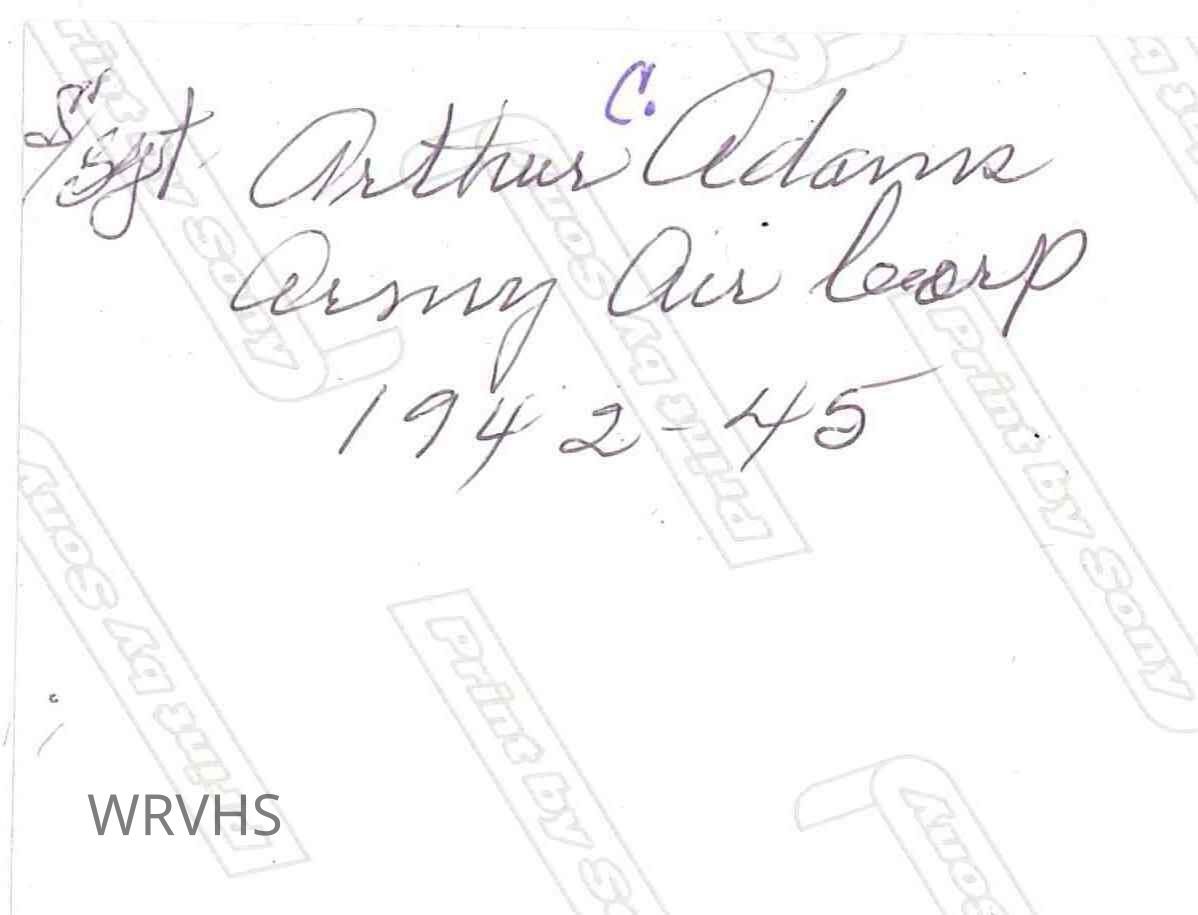 S/sgt Arthur C. Adams
Army Air Corp
1942-45
Print by Sony
Print by Sony
Print by Sony
Print by Sony
Print by So
Sony
WRVHS